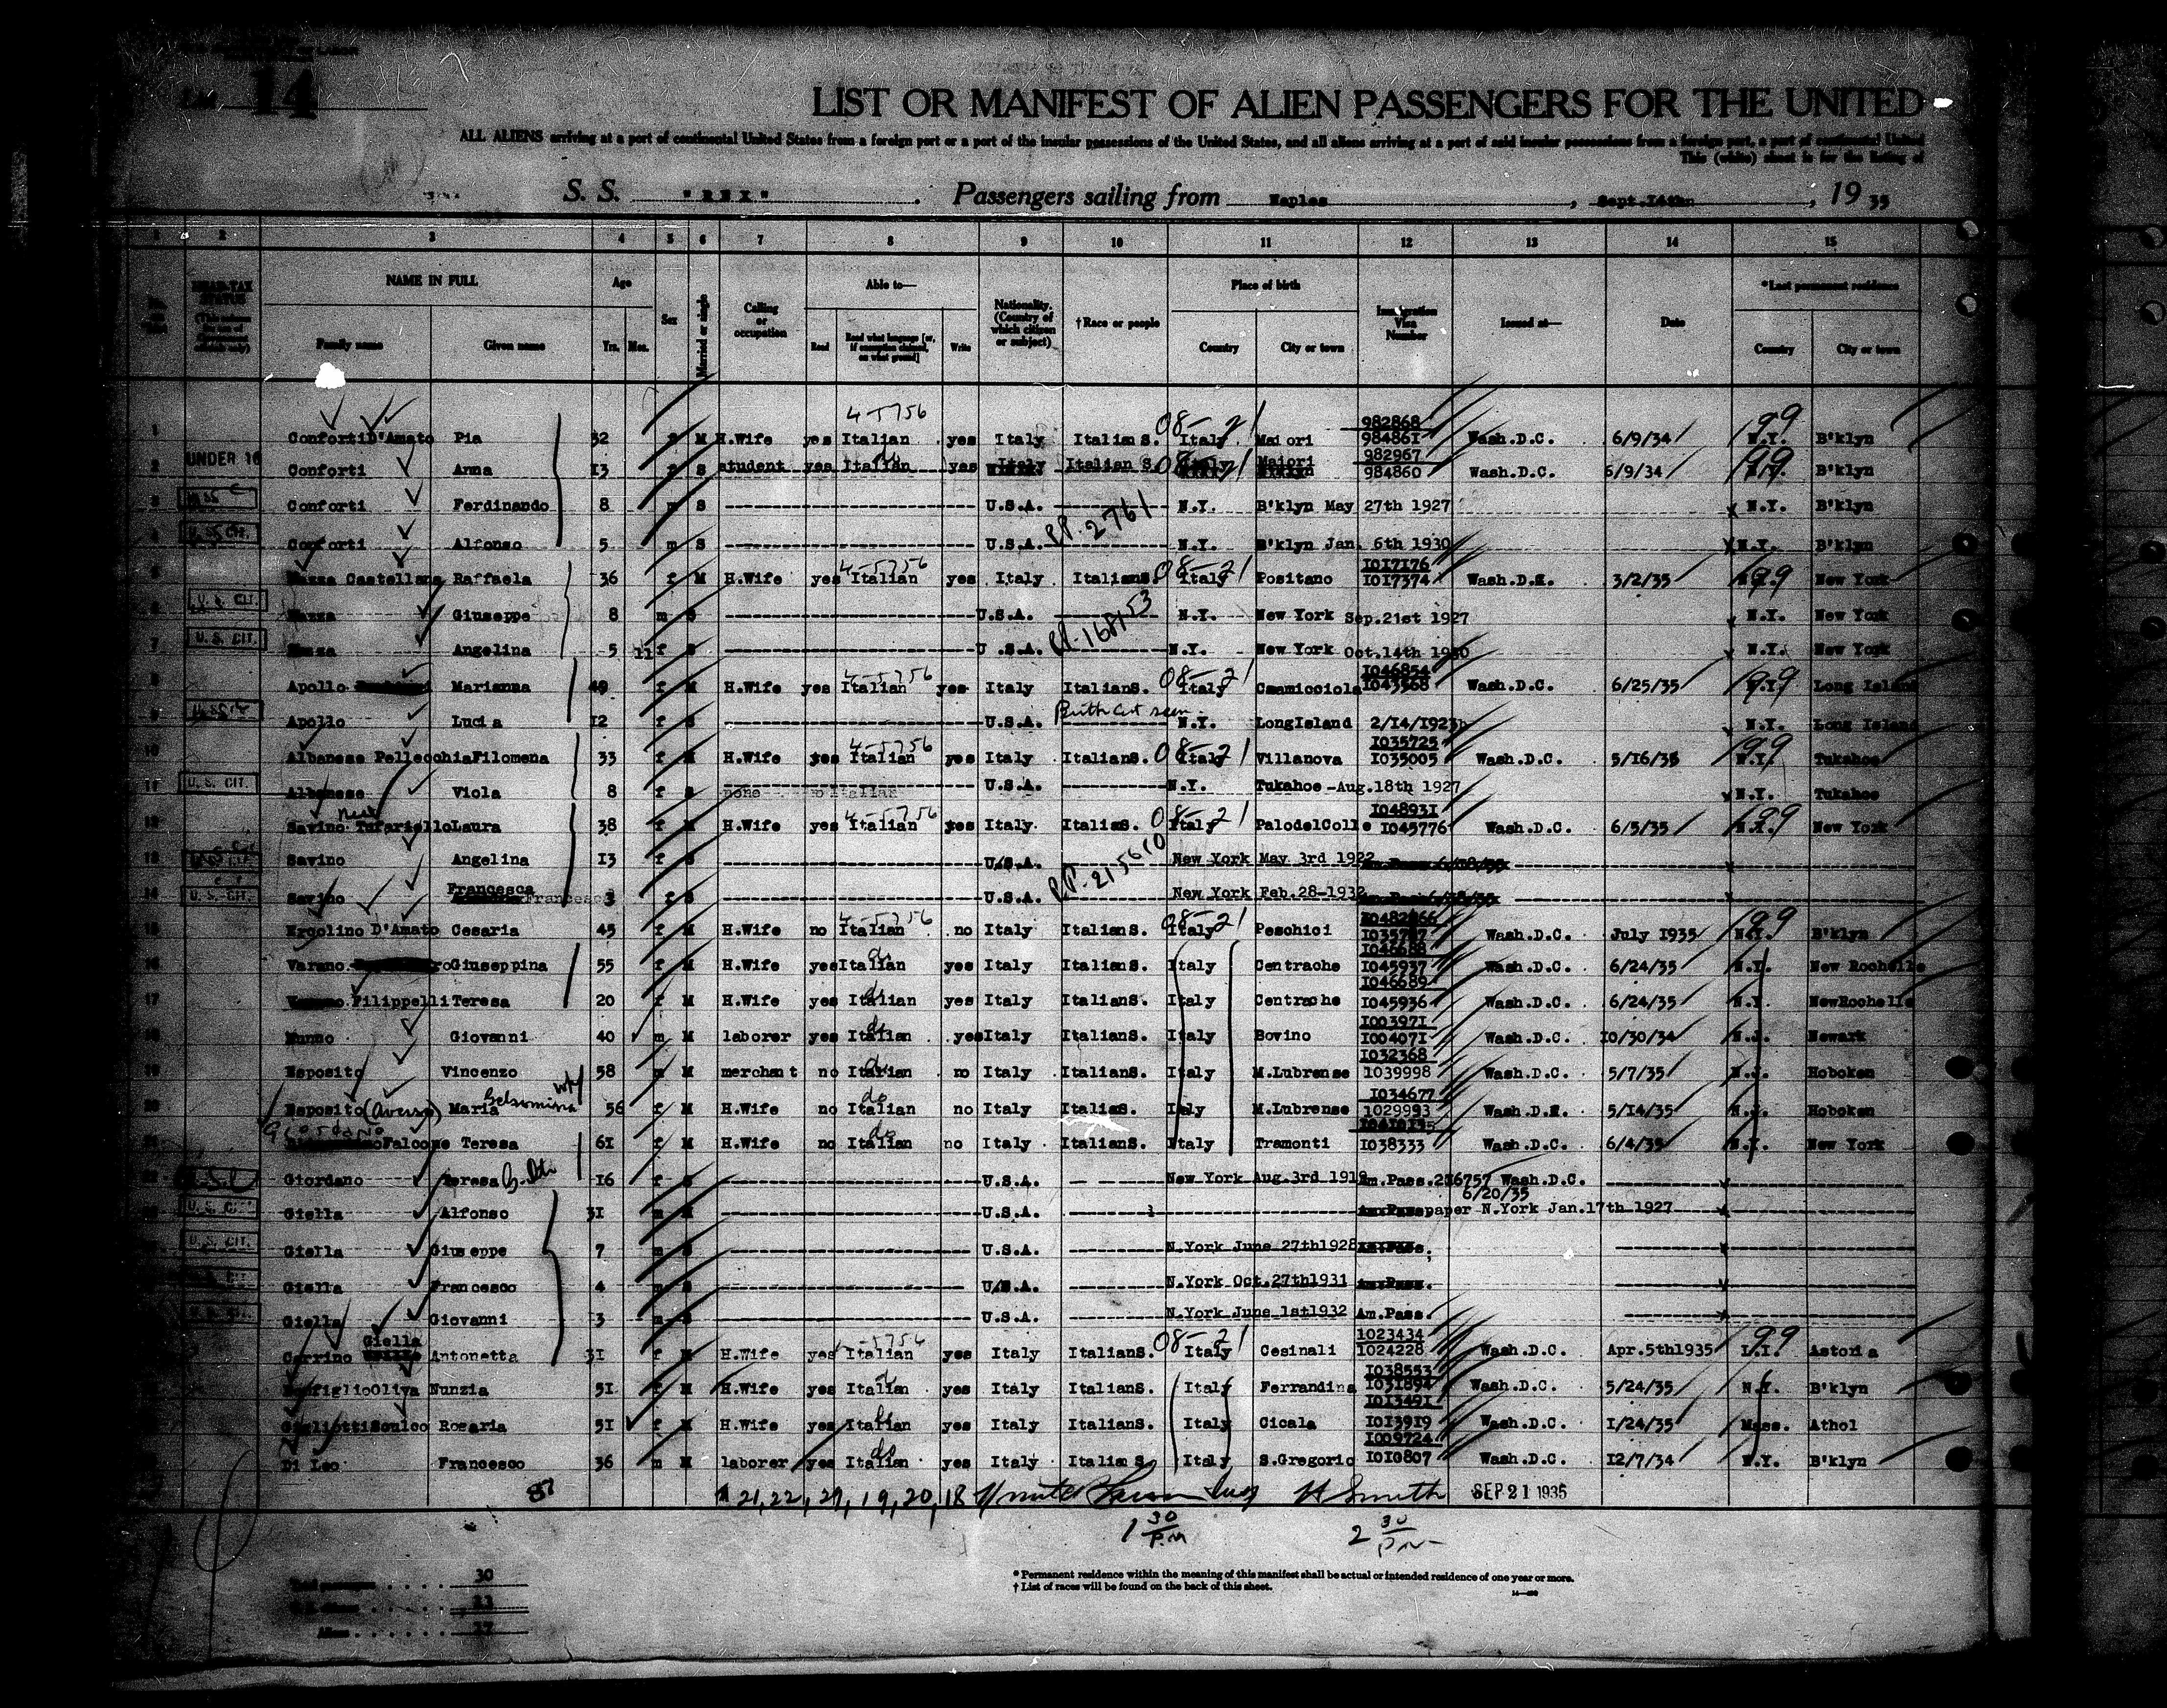 14
LIST OR MANIFEST OF ALIEN PASSENGERS FOR THE UNITED
ALL ALIENS arriving at a port of continental United States from a foreign port or a port of the insular possessions of the United States, and all aliens arriving at a port of said insular possessions from a foreign port, a port of continental United
This (white) sheet is for the listing of
S. S. "REX" . Passengers sailing from Naples , Sept.14th , 19 35
1 2 3 4 5 6 7 8 9 10 11 12 13 14 15
HEAD-TAX STATUS NAME IN FULL Age Sex Married or single Calling or occupation Able to— Nationality. (Country of which citizen or subject) †Race or people Place of birth Immigration Visa Number Issued at— Date *Last permanent residence
Family name Given name Yrs. Mos. Read Read what language [or, if exemption claimed, on what ground] Write Country City or town Country City or town
4-5756 08-21 982868 99
1 Conforti D'Amato Pia 32 f M H.Wife yes Italian yes Italy Italian S. Italy Maiori 984861 Wash.D.C. 6/9/34 N.Y. B'klyn
982967
2 UNDER 16 Conforti Anna 13 f S student yes Italian yes Italy Italian S. Italy Maiori 984860 Wash.D.C. 6/9/34 B'klyn
3 Conforti Ferdinando 8 m S U.S.A. N.Y. B'klyn May 27th 1927 x N.Y. B'klyn
PP. 2761
4 Conforti Alfonso 5 m S U.S.A. N.Y. B'klyn Jan. 6th 1930 x N.Y. B'klyn
4-5756 08-21 1017176 99
5 Mazza Castellana Raffaela 36 f M H.Wife yes Italian yes Italy ItalianS. Italy Positano 1017374 Wash.D.C. 3/2/35 New York
6 U. S. CIT. Mazza Giuseppe 8 m S U.S.A. N.Y. New York Sep.21st 1927 x N.Y. New York
PP. 168153
7 U. S. CIT. Mazza Angelina 5 11 f S U.S.A. N.Y. New York Oct.14th x N.Y. New York
4-5756 08-21 1046854 99
8 Apollo Marianna 49 f M H.Wife yes Italian yes Italy ItalianS. Italy Casamicciola 1043368 Wash.D.C. 6/25/35 N.Y. Long Island
Birth Cert seen
9 Apollo Lucia 12 f S U.S.A. N.Y. LongIsland 2/14/1923 x N.Y. Long Island
4-5756 08-21 1035725 99
10 Albanese PellecchiaFilomena 33 f M H.Wife yes Italian yes Italy ItalianS. Italy Villanova 1035005 Wash.D.C. 5/16/35 N.Y. Tukahoe
11 U. S. CIT. Albanese Viola 8 f S none U.S.A. N.Y. Tukahoe -Aug.18th 1927 x N.Y. Tukahoe
4-5756 08-21 1048931 99
12 Savino TufarielloLaura 38 f M H.Wife yes Italian yes Italy ItalianS. Italy PalodelColle 1045776 Wash.D.C. 6/5/35 N.Y. New York
13 Savino Angelina 13 f S U.S.A. New York May 3rd 1922 x
PP. 215610
14 U. S. CIT. Savino Francesca 3 f S U.S.A. New York Feb.28-1932 x
4-5756 08-21 99
15 Ercolino D'Amato Cesaria 45 f M H.Wife no Italian no Italy ItalianS. Italy Peschici Wash.D.C. July 1935 N.Y. B'klyn
do 1046688
16 Varano Giuseppina 55 f M H.Wife yes Italian yes Italy ItalianS. Italy Centrache 1045937 Wash.D.C. 6/24/35 N.Y. New Rochelle
do 1046689
17 Filippelli Teresa 20 f M H.Wife yes Italian yes Italy ItalianS. Italy Centrache 1045936 Wash.D.C. 6/24/35 N.Y. NewRochelle
do 1003971
18 Nunno Giovanni 40 m M laborer yes Italian yes Italy ItalianS. Italy Bovino 1004071 Wash.D.C. 10/30/34 N.J. Newark
do 1032368
19 Esposito Vincenzo 58 m M merchant no Italian no Italy ItalianS. Italy M.Lubrense 1039998 Wash.D.C. 5/7/35 N.J. Hoboken
Gelsomina do 1034677
20 Esposito (Averso) Maria 56 f M H.Wife no Italian no Italy ItalianS. Italy M.Lubrense 1029993 Wash.D.C. 5/14/35 N.J. Hoboken
Giordano do
21 Falcone Teresa 61 f M H.Wife no Italian no Italy ItalianS. Italy Tramonti 1038333 Wash.D.C. 6/4/35 N.Y. New York
Giordano Teresa 16 f S U.S.A. New York Aug.3rd 1918 Wash.D.C. x
6/20/35
Giella Alfonso 31 m M U.S.A. paper N.York Jan.17th 1927 x
Giella Giuseppe 7 m S U.S.A. N.York June 27th1928 x
Giella Francesco 4 m S U.S.A. N.York Oct.27th1931 Am.Pass. x
Giella Giovanni 3 m S U.S.A. N.York June 1st1932 Am.Pass. x
Giella 4-5756 08-21 1023434 99
Carrino Antonetta 31 f M H.Wife yes Italian yes Italy ItalianS. Italy Cesinali 1024228 Wash.D.C. Apr.5th1935 L.I. Astoria
1038553
Oliva Nunzia 51 f M H.Wife yes Italian yes Italy ItalianS. Italy Ferrandina 1031894 Wash.D.C. 5/24/35 N.Y. B'klyn
do 1013491
Rosaria 51 f M H.Wife yes Italian yes Italy ItalianS. Italy Cicala 1013919 Wash.D.C. 1/24/35 Mass. Athol
do 1009724
Di Leo Francesco 36 m M laborer yes Italian yes Italy Italian S. Italy S.Gregorio 1010807 Wash.D.C. 12/7/34 N.Y. B'klyn
87 21, 22, 29, 19, 20, 18 H Smith SEP 21 1935
1 30 P.M 2 30 P.M
Total passengers 30
Aliens 17
* Permanent residence within the meaning of this manifest shall be actual or intended residence of one year or more.
† List of races will be found on the back of this sheet.